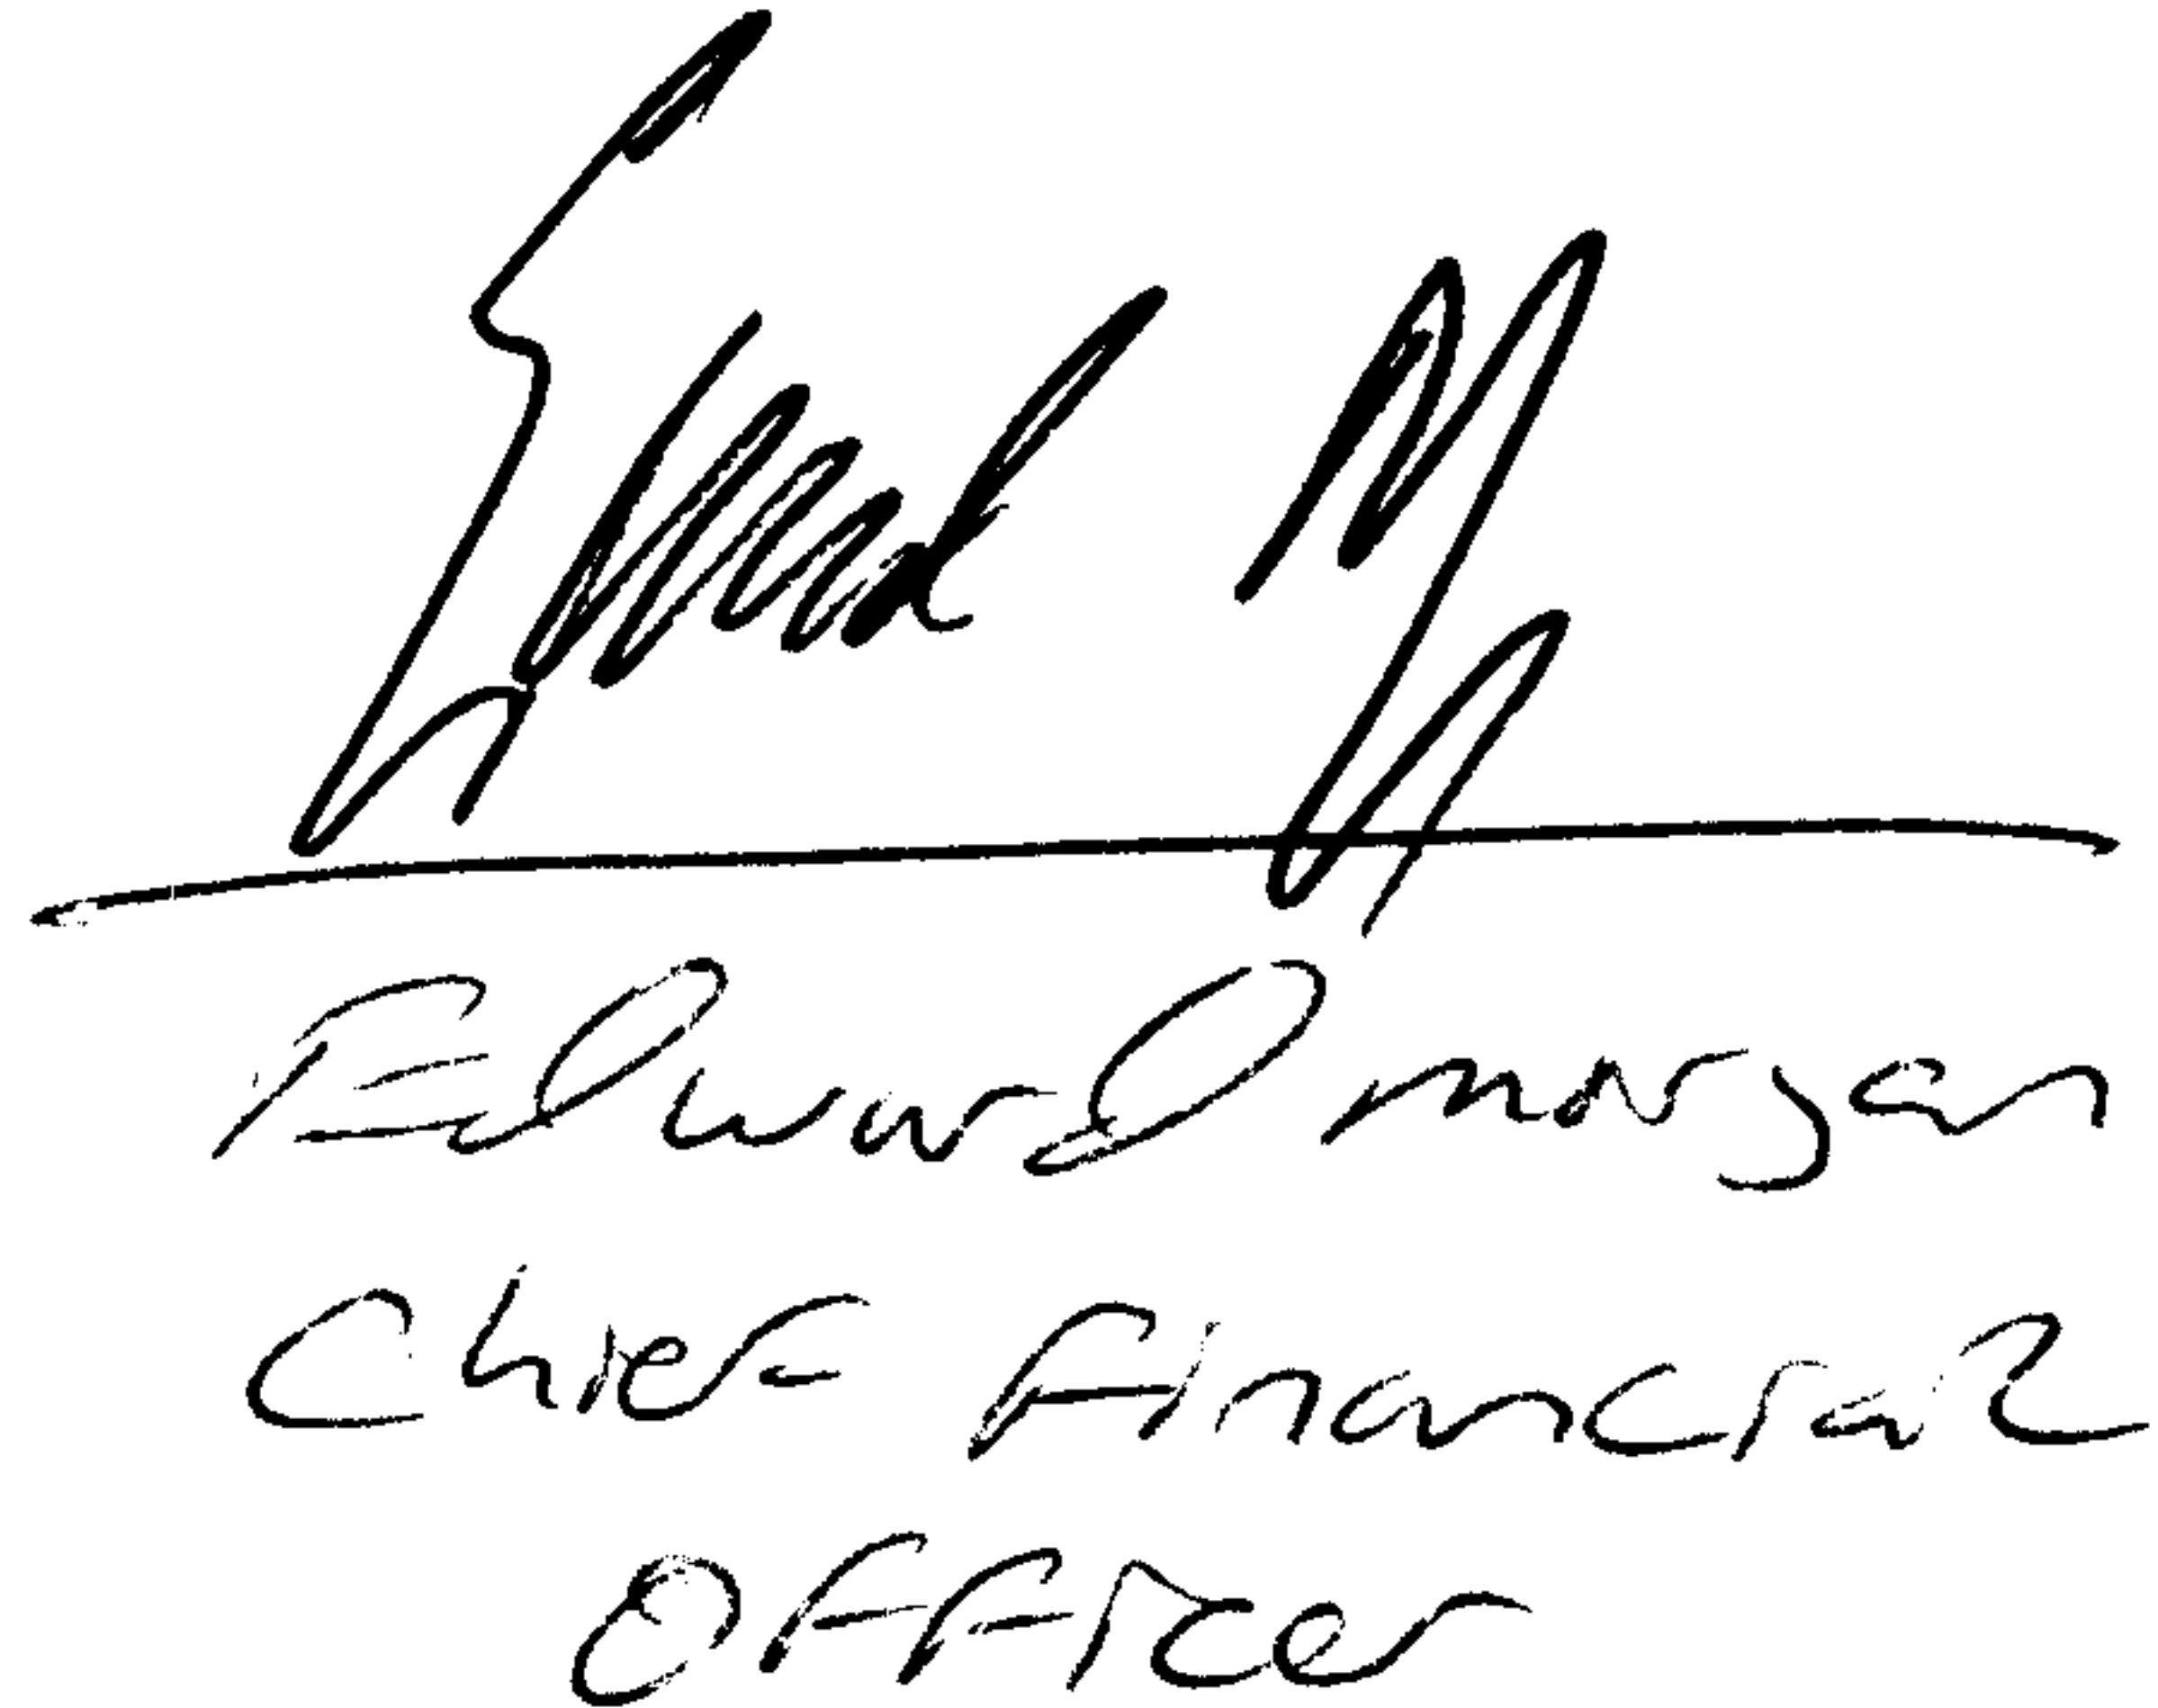 Edward Morgan
Chief Financial
Officer